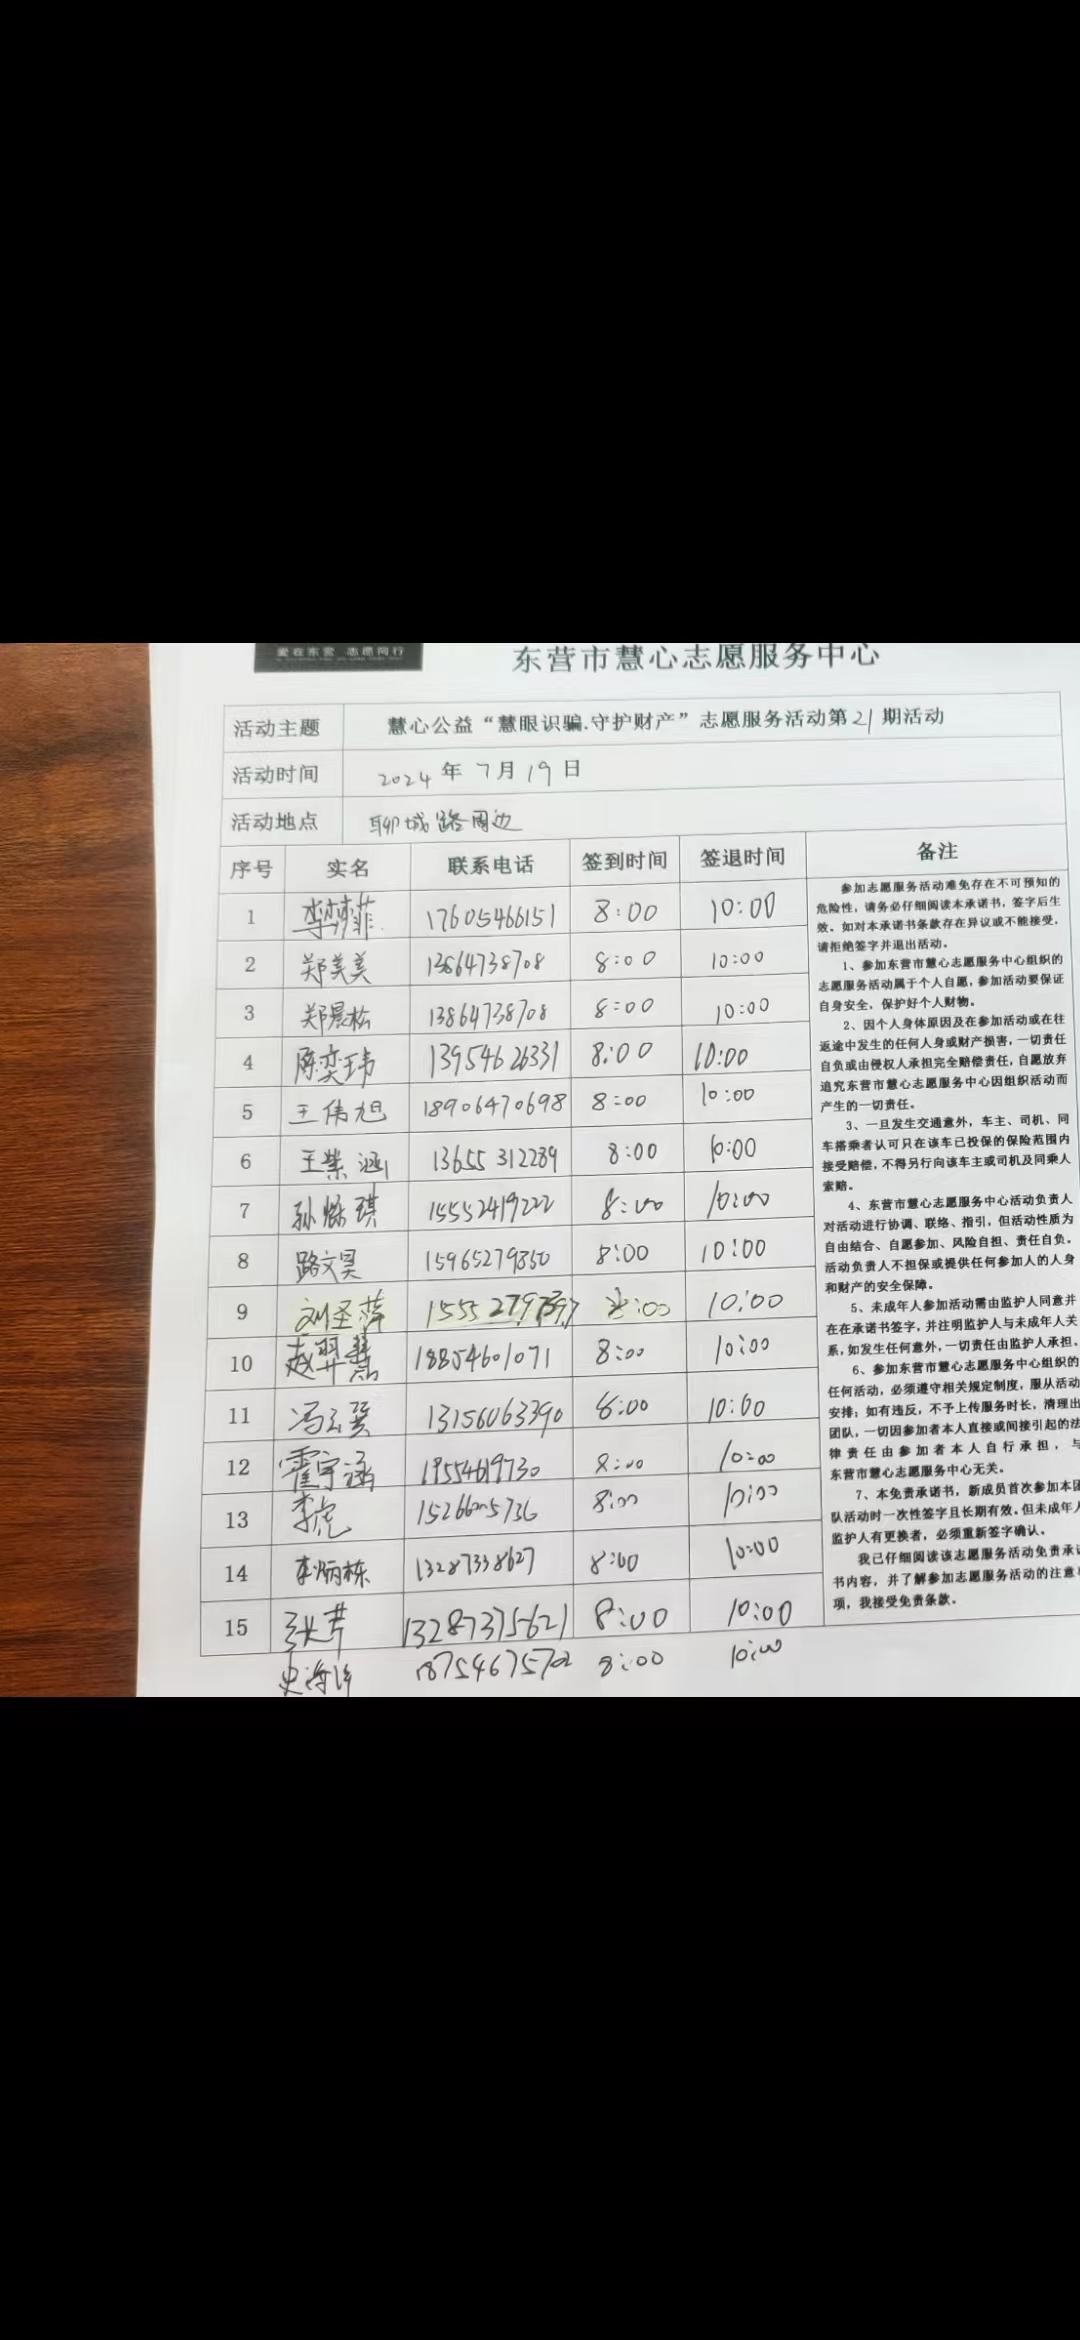 爱在东营 志愿同行
东营市慧心志愿服务中心
活动主题 慧心公益“慧眼识骗.守护财产”志愿服务活动第21期活动
活动时间 2024年7月19日
活动地点 聊城路周边
序号 实名 联系电话 签到时间 签退时间 备注
1 17605466151 8:00 10:00
2 郑美美 13864738708 8:00 10:00
3 郑晨松 13864738708 8:00 10:00
4 陈奕玮 13954626331 8:00 10:00
5 王伟旭 18906470698 8:00 10:00
6 王紫涵 13655312289 8:00 10:00
7 孙烁琪 15552419222 8:00 10:00
8 路文昊 15965279350 8:00 10:00
9 刘圣萍 8:00 10:00
10 赵羿慧 18854601071 8:00 10:00
11 冯云冀 13156063390 8:00 10:00
12 霍宇涵 19554619730 8:00 10:00
13 李虎 15266005736 8:00 10:00
14 李炳栋 13287338627 8:00 10:00
15 张芹 13287375621 8:00 10:00
史海 18754675702 8:00 10:00
参加志愿服务活动难免存在不可预知的
危险性，请务必仔细阅读本承诺书，签字后生
效。如对本承诺书条款存在异议或不能接受，
请拒绝签字并退出活动。
1、参加东营市慧心志愿服务中心组织的
志愿服务活动属于个人自愿，参加活动要保证
自身安全，保护好个人财物。
2、因个人身体原因及在参加活动或在往
返途中发生的任何人身或财产损害，一切责任
自负或由侵权人承担完全赔偿责任，自愿放弃
追究东营市慧心志愿服务中心因组织活动而
产生的一切责任。
3、一旦发生交通意外，车主、司机、同
车搭乘者认可只在该车已投保的保险范围内
接受赔偿，不得另行向该车主或司机及同乘人
索赔。
4、东营市慧心志愿服务中心活动负责人
对活动进行协调、联络、指引，但活动性质为
自由结合、自愿参加、风险自担、责任自负。
活动负责人不担保或提供任何参加人的人身
和财产的安全保障。
5、未成年人参加活动需由监护人同意并
在在承诺书签字，并注明监护人与未成年人关
系，如发生任何意外，一切责任由监护人承担。
6、参加东营市慧心志愿服务中心组织的
任何活动，必须遵守相关规定制度，服从活动
安排；如有违反，不予上传服务时长，清理出
团队，一切因参加者本人直接或间接引起的法
律责任由参加者本人自行承担，与
东营市慧心志愿服务中心无关。
7、本免责承诺书，新成员首次参加本团
队活动时一次性签字且长期有效。但未成年人
监护人有更换者，必须重新签字确认。
我已仔细阅读该志愿服务活动免责承诺
书内容，并了解参加志愿服务活动的注意事
项，我接受免责条款。